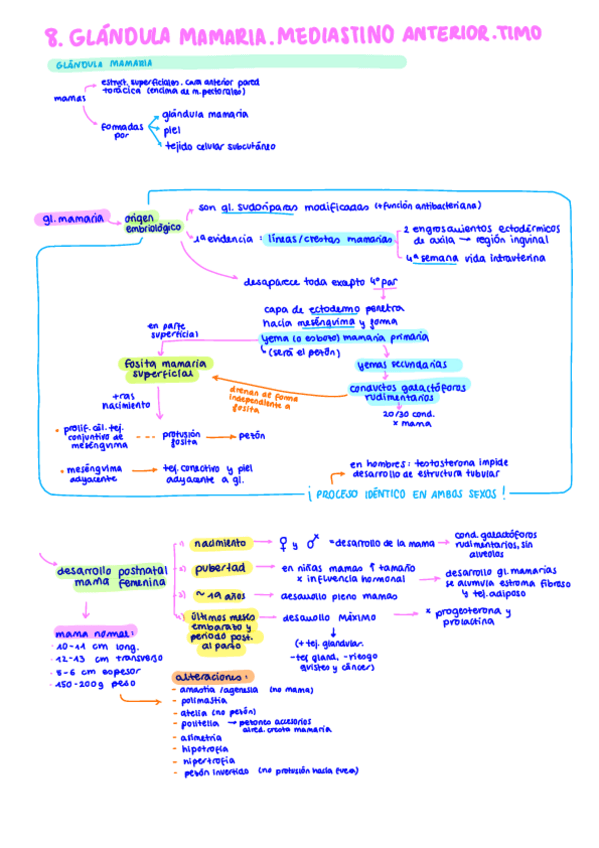 8. GLÁNDULA MAMARIA. MEDIASTINO ANTERIOR. TIMO
GLÁNDULA MAMARIA
mamas
estruct. superficiales. cara anterior pared
torácica (encima de m. pectorales)
formadas
por
glándula mamaria
piel
tejido celular subcutáneo
gl. mamaria
origen
embriológico
son gl. sudoríparas modificadas (+función antibacteriana)
1ª evidencia: líneas/crestas mamarias
2 engrosamientos ectodérmicos
de axila → región inguinal
4ª semana vida intrauterina
desaparece toda excepto 4º par
capa de ectodermo penetra
hacia mesénquima y forma
yema (o esbozo) mamaria primaria
(será el pezón)
en parte
superficial
fosita mamaria
superficial
yemas secundarias
conductos galactóforos
rudimentarios
20/30 cond.
x mama
drenan de forma
independiente a
fosita
tras
nacimiento
• prolif. cél. tej.
conjuntivo de
mesénquima
protusión
fosita
→ pezón
• mesénquima
adyacente
tej. conectivo y piel
adyacente a gl.
en hombres: testosterona impide
desarrollo de estructura tubular
¡PROCESO IDÉNTICO EN AMBOS SEXOS!
desarrollo postnatal
mama femenina
1) nacimiento
♀ y ♂ = desarrollo de la mama
cond. galactóforos
rudimentarios, sin
alveolos
2) pubertad
en niñas mamas ↑ tamaño
x influencia hormonal
desarrollo gl. mamarias
se acumula estroma fibroso
y tej. adiposo
3) ~ 19 años
desarrollo pleno mamas
4) últimos meses
embarazo y
periodo post.
al parto
desarrollo MÁXIMO
x progesterona y
prolactina
(+ tej. glandular
-tej gland. -riesgo
quistes y cáncer)
mama normal:
• 10-11 cm long.
• 12-13 cm transverso
• 5-6 cm espesor
• 150-200g peso
alteraciones:
- amastia/agenesia (no mama)
- polimastia
- atelia (no pezón)
- politelia → pezones accesorios
alred. cresta mamaria
- asimetría
- hipotrofia
- hipertrofia
- pezón invertido (no protusión hacia fuera)